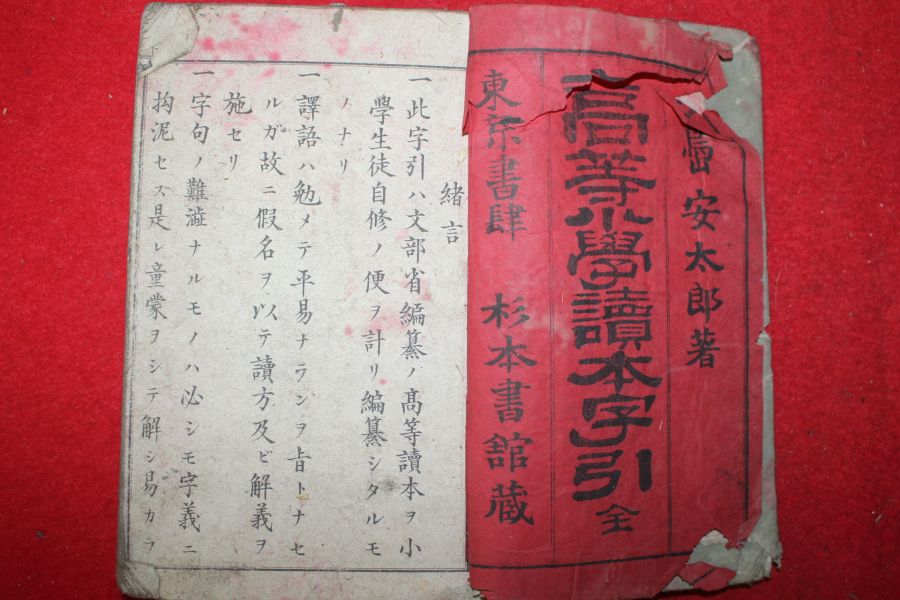 島安太郎著
高等小學讀本字引 全
東京書肆 杉本書舘蔵
緒言
一此字引ハ文部省編纂ノ髙等讀本ヲ小
學生徒自修ノ便ヲ計リ編纂シタルモ
ノナリ
一譯語ハ勉メテ平易ナランヲ旨トナセ
ルガ故ニ假名ヲ以テ讀方及ビ解義ヲ
施セリ
一字句ノ難澁ナルモノハ必シモ字義ニ
拘泥セズ是レ童蒙ヲシテ解シ易カラ